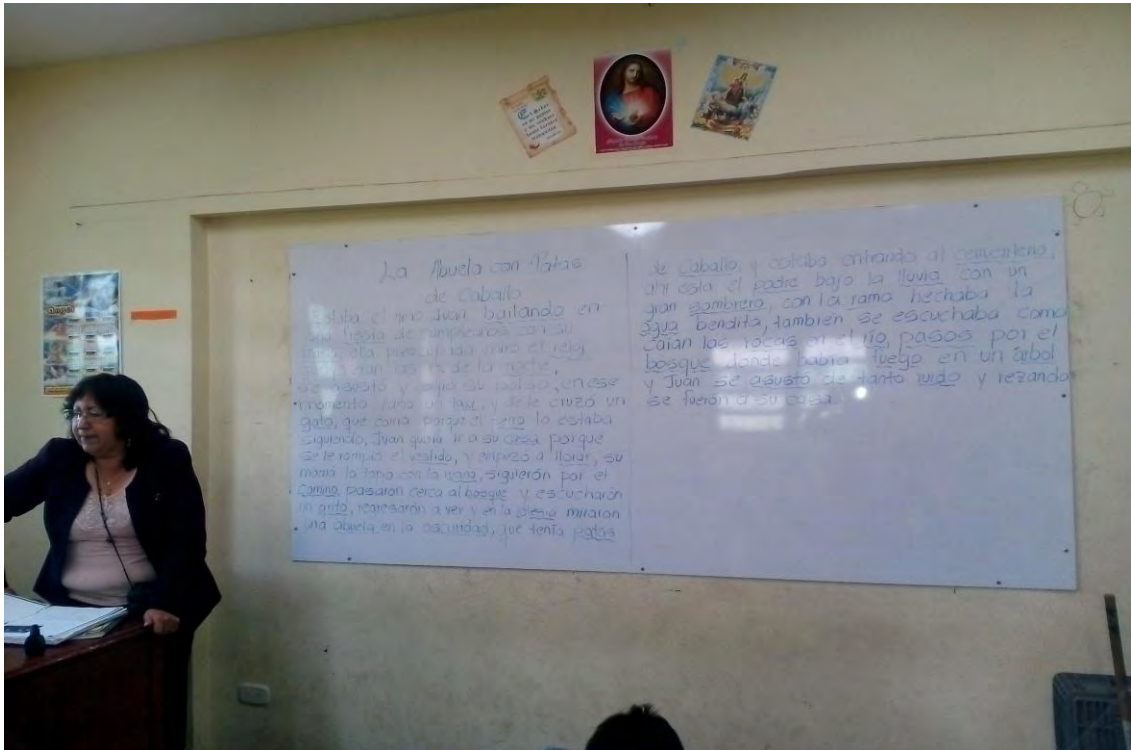 La Abuela con Patas
de Caballo
Estaba el niño Juan bailando en
una fiesta de cumpleaños con su
mamá, ella preocupada miro el reloj
de la noche,
se asustó y cogio su abrigo, en ese
momento un taxi, y se le cruzó un
gato, que corria porque el perro lo estaba
siguiendo, Juan queria ir a su casa porque
se le rompio el vestido, y empezó a llorar, su
mamá lo tomo con la mano, siguierón por el
camino, pasaron cerca al bosque y escucharón
un grito, regresarón a ver y en la iglesia miraron
una abuela en la oscuridad, que tenía patas
de caballo, y estaba entrando al cementerio,
ahi esta el padre bajo la lluvia con un
gran sombrero, con la rama hechaba la
agua bendita, también se escuchaba como
caian las rocas al río, pasos por el
bosque donde habia fuego en un árbol
y Juan se asusto de tanto ruido y rezando
se fuerón a su casa.
Angel